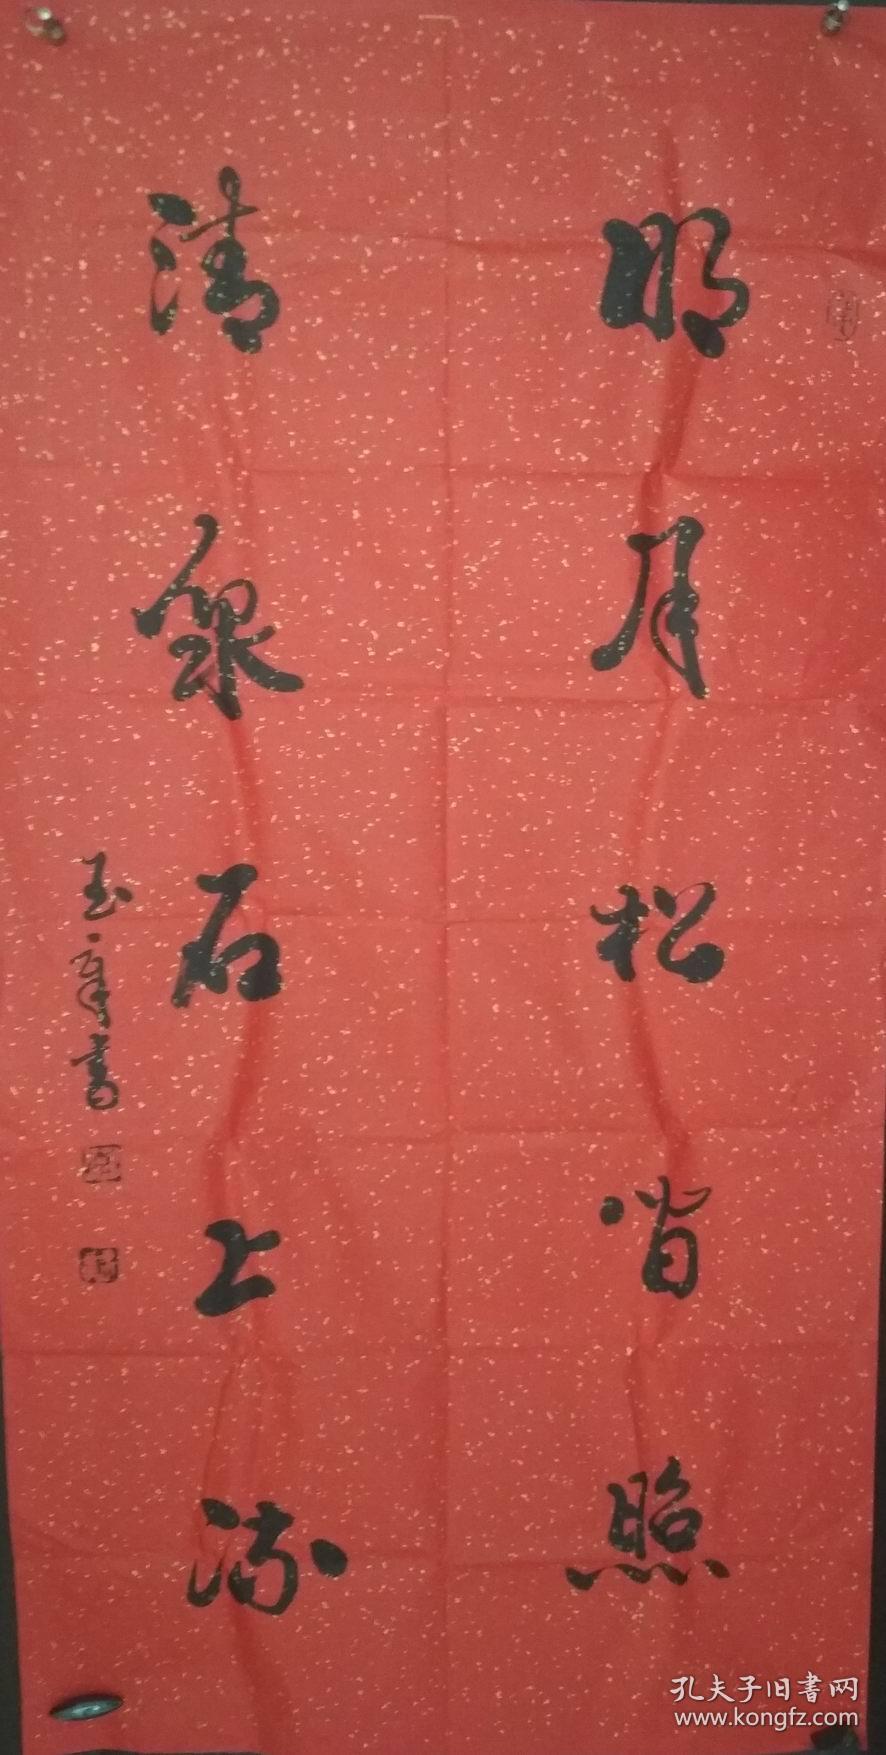 明月松间照
清泉石上流
玉章书
孔夫子旧书网
www.kongfz.com